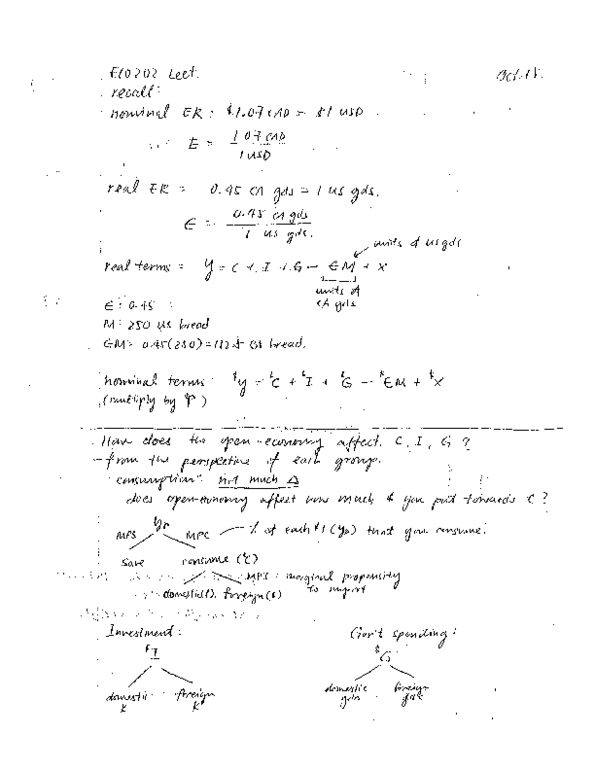 ECO202 Lect. Oct. 15.
recall:
nominal ER : $1.07 CAD = $1 USD
∴ E = 1.07 CAD / 1 USD
real ER = 0.45 CA gds = 1 US gds.
ϵ = 0.45 CA gds / 1 US gds.
units of US gds
real terms = Y = C + I + G - ϵM + X
units of CA gds
ϵ : 0.45
M : 250 US bread
ϵM = 0.45(250) = 112.5 CA bread.
nominal terms: $Y = $C + $I + $G - $ϵM + $X
(multiply by P)
How does the open-economy affect C, I, G ?
- from the perspective of each group.
consumption: not much Δ
does open-economy affect how much $ you put towards C ?
YD
MPS MPC — % of each $1 (YD) that you consume.
save consume ($C)
MPI : marginal propensity to import
domestic($) foreign($)
Investment : Gov't spending :
$I $G
domestic K foreign K domestic gds foreign gds